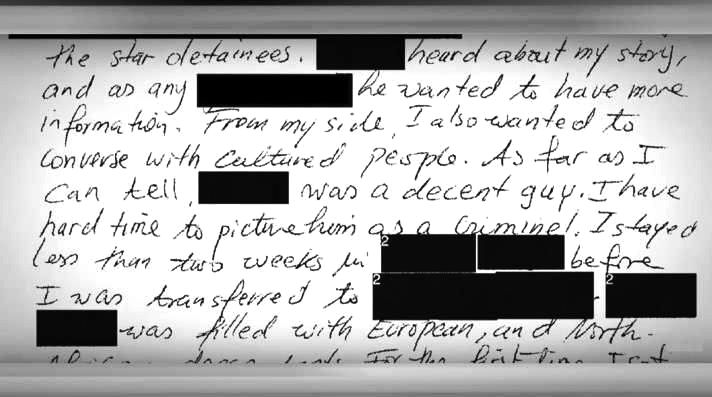 the star detainees. heard about my story,
and as any he wanted to have more
information. From my side, I also wanted to
converse with cultured people. As far as I
can tell, was a decent guy. I have
hard time to picture him as a criminel. I stayed
less than two weeks in 2 before
I was transferred to 2 2
was filled with European, and North-
For the first time I